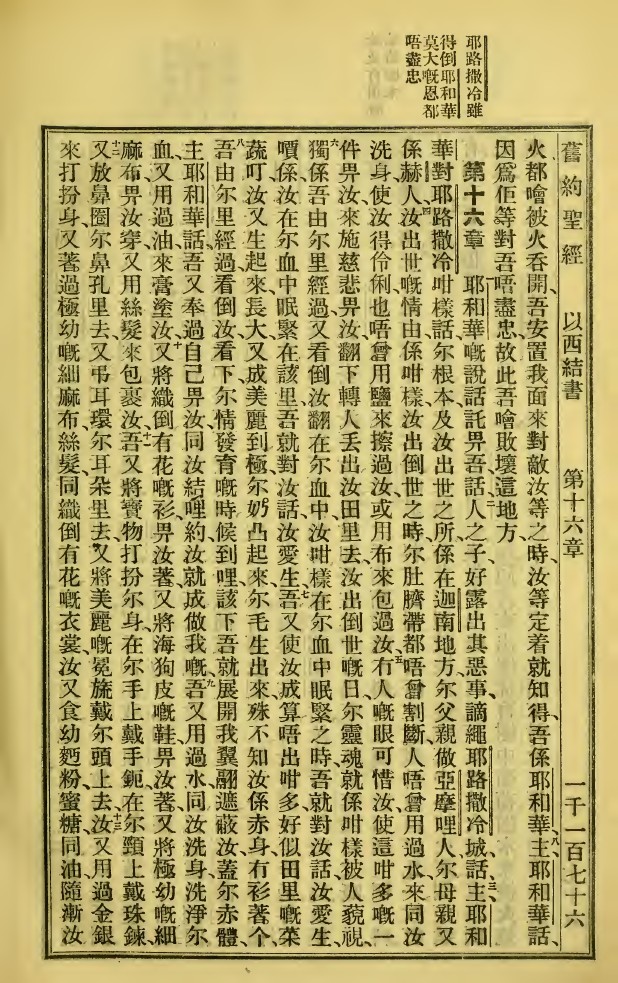 舊約聖經 以西結書 第十六章 一千一百七十六
耶路撒冷雖
得倒耶和華
莫大嘅恩都
唔盡忠
火都噲被火吞開、吾安置我面來對敵汝等之時、汝等定着就知得、吾係耶和華、八主耶和華話、
因爲佢等對吾唔盡忠、故此吾噲敗壞這地方、
第十六章 耶和華嘅說話託畀吾話、二人之子好露出其惡事謫繩耶路撒冷城、話、三主耶和
華對耶路撒冷咁樣話、尔根本及汝出世之所、係在迦南地方、尔父親做亞摩哩人、尔母親又
係赫人、四汝出世嘅情由係咁樣、汝出倒世之時、尔肚臍帶都唔曾割斷、人唔曾用過水來同汝
洗身、使汝得伶俐、也唔曾用鹽來擦過汝、或用布來包過汝、五冇人嘅眼可惜汝、使這咁多嘅一
件畀汝、來施慈悲畀汝、翻下轉人丟出汝田里去、汝出倒世嘅日、尔靈魂就係咁樣被人藐視、
六獨係吾由尔里經過、又看倒汝翻在尔血中、汝咁樣在尔血中眠緊之時、吾就對汝話、汝愛生、
嘖係汝在尔血中眠緊在該里、吾就對汝話、汝愛生、七吾又使汝成算唔出咁多、好似田里嘅菜
蔬、叮汝又生起來、長大、又成美麗到極、尔奶凸起來、尔毛生出來、殊不知汝係赤身、冇衫著个、
八吾由尔里經過看倒汝、看下尔情發育嘅時候到哩、該下吾就展開我翼翮遮蔽汝、蓋尔赤體、
主耶和華話、吾又奉過自己畀汝、同汝結哩約、汝就成做我嘅、九吾又用過水同汝洗身、洗淨尔
血、又用過油來膏塗汝、十又將織倒有花嘅衫畀汝著、又將海狗皮嘅鞋畀汝著、又將極幼嘅細
麻布畀汝穿、又用絲髮來包裹汝、十一吾又將寶物打扮尔身、在尔手上戴手鈪、在尔頸上戴珠鍊、
十二又放鼻圈尔鼻孔里去、又弔耳環尔耳朵里去、又將美麗嘅冕旒戴尔頭上去、十三汝又用過金銀
來打扮身、又著過極幼嘅細麻布、絲髮、同織倒有花嘅衣裳、汝又食幼麪粉、蜜糖、同油、隨漸汝